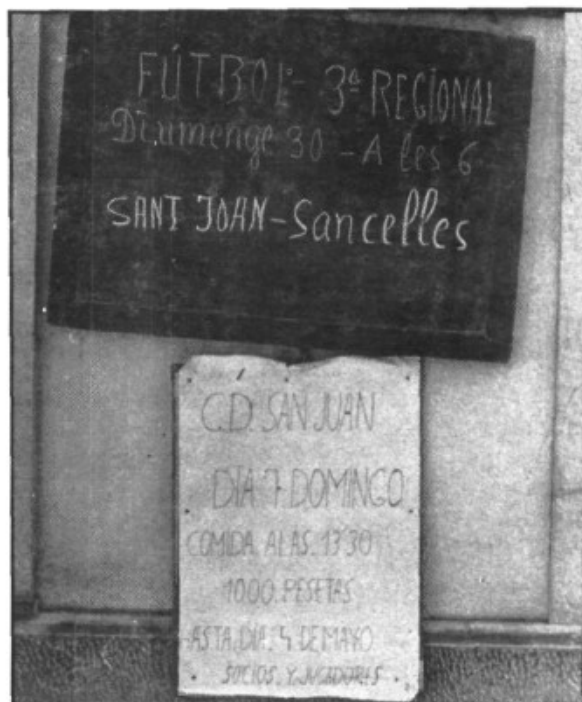 FÚTBOL - 3ª REGIONAL
Diumenge 30 - A les 6
SANT JOAN - Sancelles
C.D. SAN JUAN
DIA 7. DOMINGO
COMIDA. A LAS. 13'30
1000. PESETAS
ASTA. DIA. 4 DE MAYO
SOCIOS. Y. JUGADORES